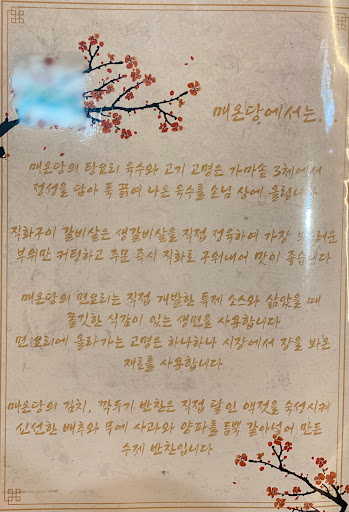 매온당에서는..
매온당의 탕요리 육수와 고기 고명은 가마솥 3체에서
정성을 담아 푹 끓여 나온 육수를 손님 상에 올립니다
직화구이 갈비살은 생갈비살을 직접 정육하여 가장
부위만 커팅하고 주문 즉시 직화로 구워내어 맛이 좋습니다
매온당의 면요리는 직접 개발한 특제 소스와 삶았을 때
쫄깃한 식감이 있는 생면을 사용합니다
면 요리에 올라가는 고명은 하나하나 시장에서 장을 봐온
재료를 사용합니다
매온당의 김치, 깍두기 반찬은 직접 달인 액젓을 숙성시켜
신선한 배추와 무에 사과와 양파를 듬뿍 갈아넣어 만든
수제 반찬입니다